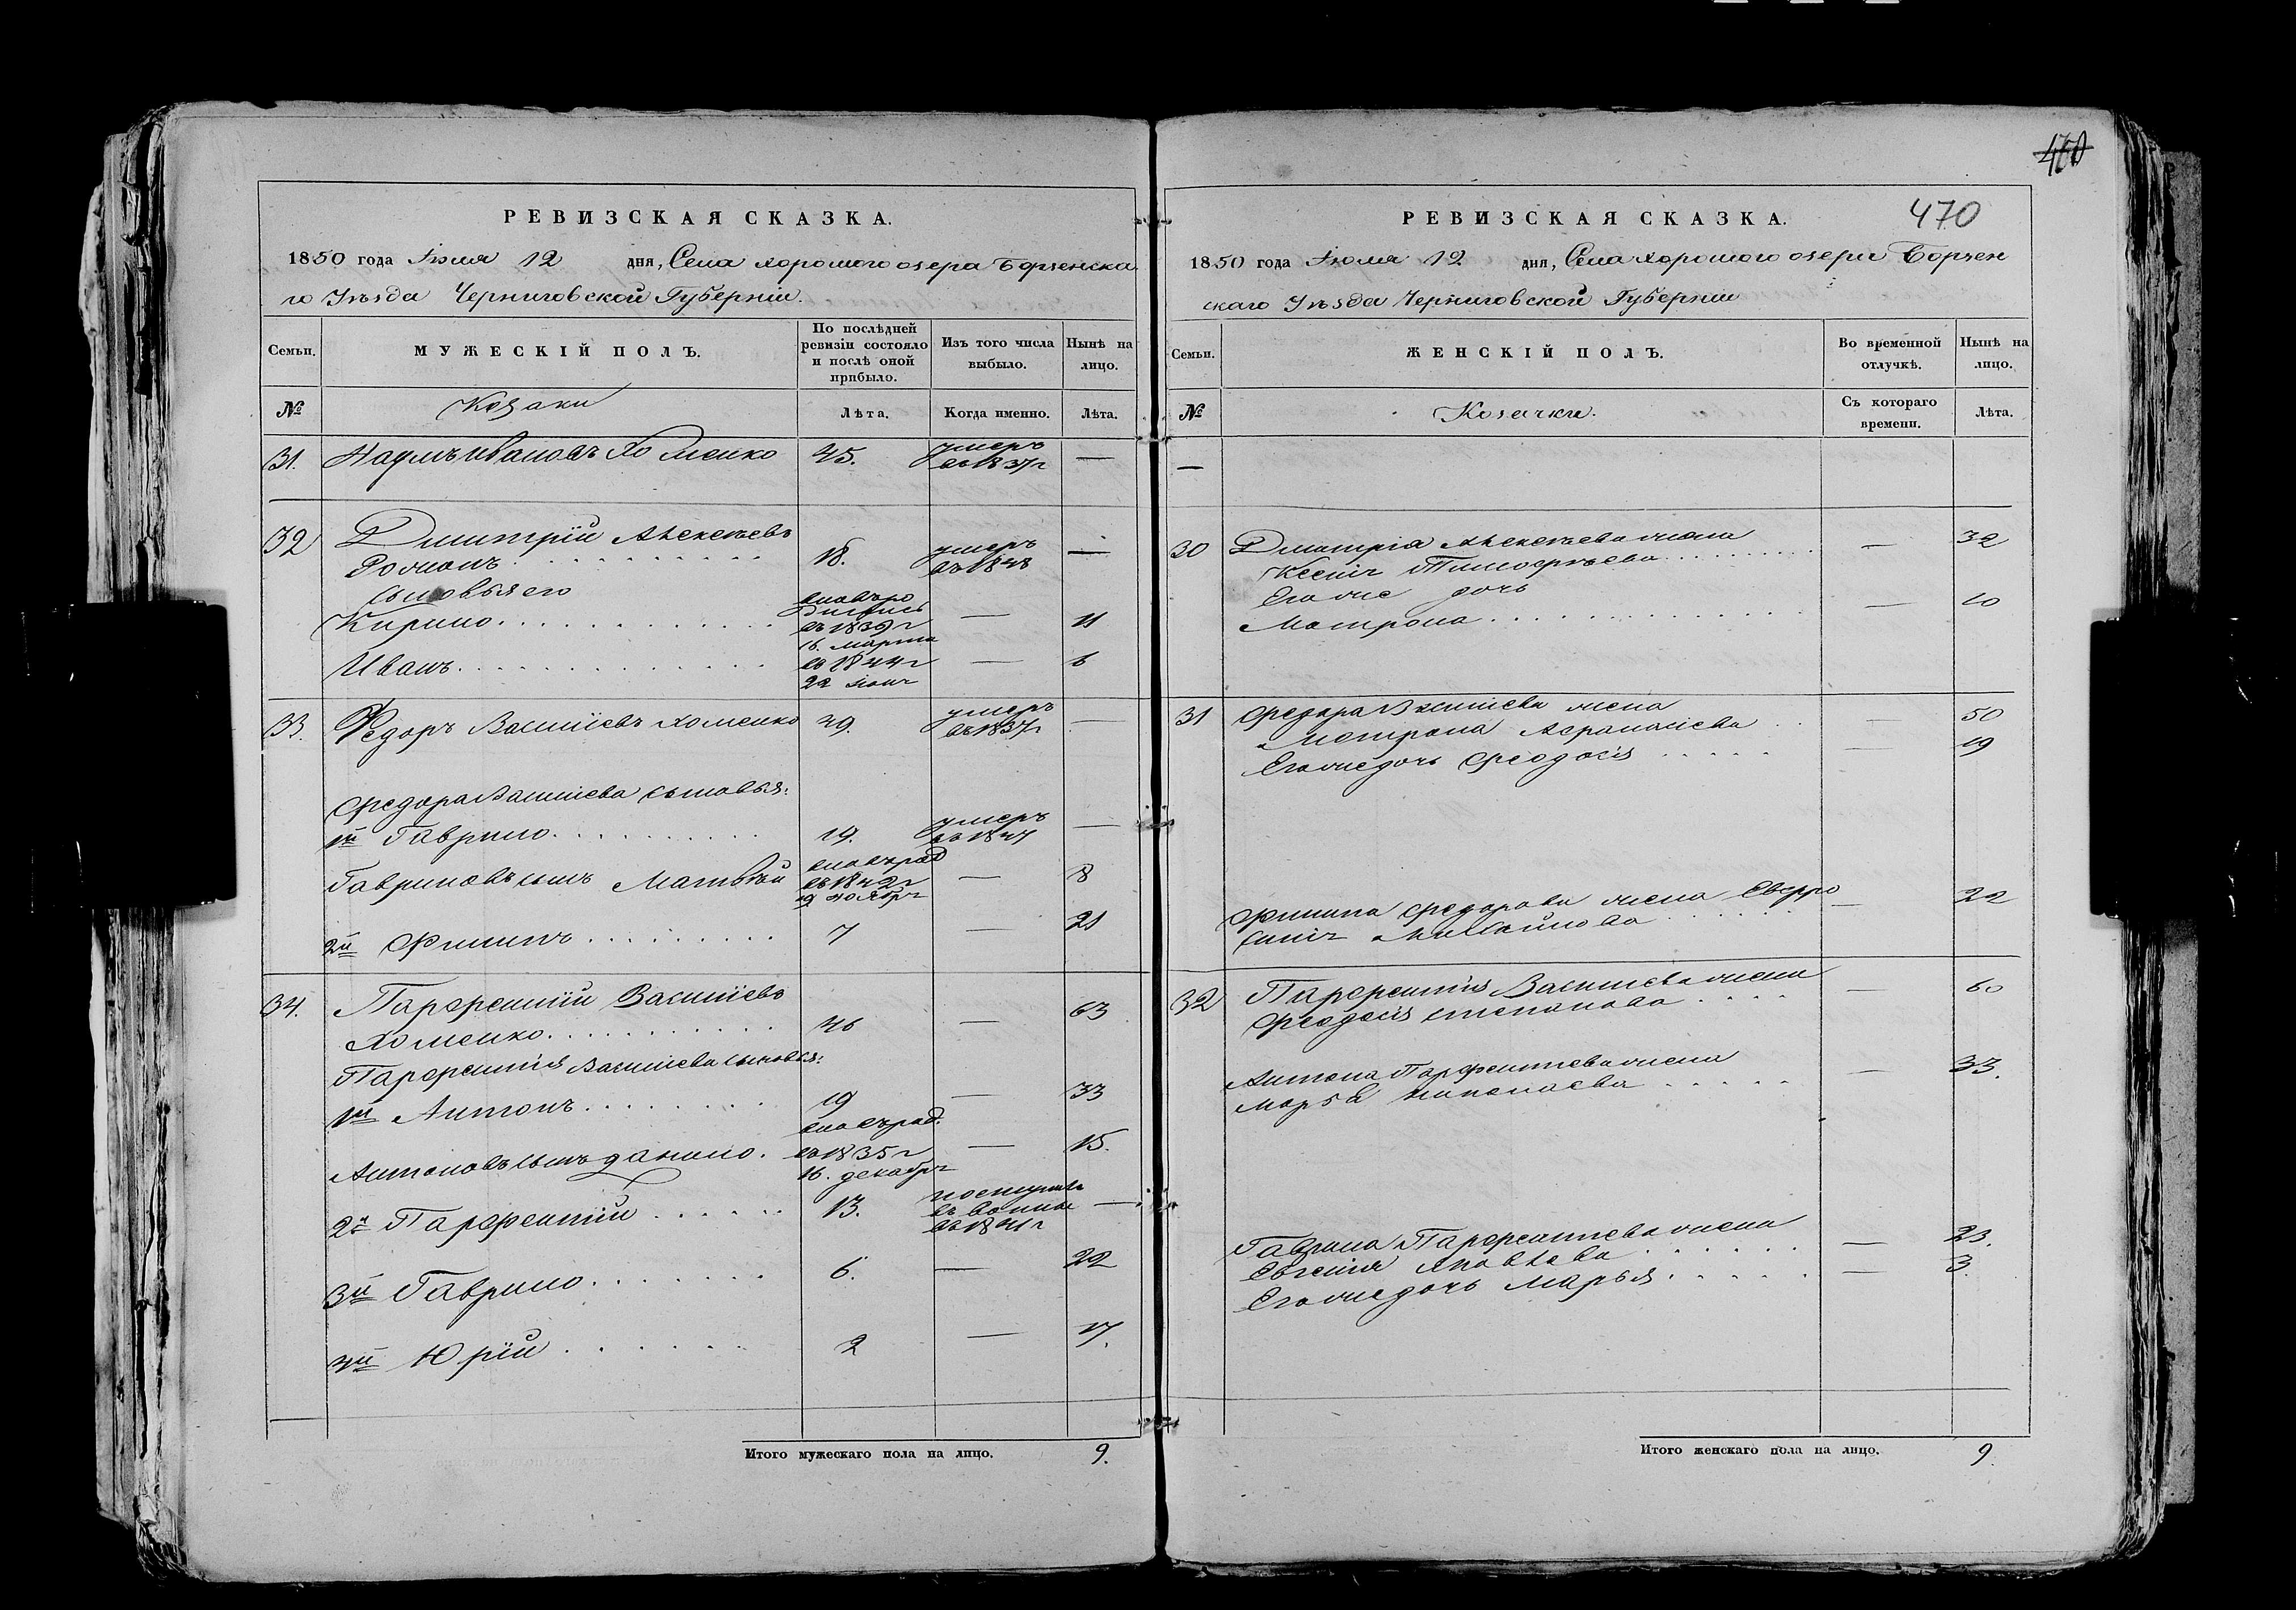 460
РЕВИЗСКАЯ СКАЗКА.
1850 года Іюля 12 дня, Села Хорошого озера Борзенска
го Уѣзда Черниговской Губерніи.
Семьи.
МУЖЕСКІЙ ПОЛЪ.
По послѣдней
ревизіи состояло
и послѣ оной
прибыло.
Изъ того числа
выбыло.
Нынѣ на
лицо.
№
Козаки
Лѣта.
Когда именно.
Лѣта.
31. Наумъ Ивановъ Хоменко 45. умеръ —
въ 1837г
32 Дмитрій Алексѣевъ
Романъ 18. умеръ —
въ 1848
Сыновья его
Кирило вновь ро
дился
въ 1839г — 11
16. марта
Иванъ въ 1844г — 6
22 іюня
33. Федоръ Васильевъ Хоменко 39. умеръ —
въ 1837г
Федора Васильева сыновья:
1й Гаврило 19. умеръ —
въ 1847
Гавриловъ сынъ Матвѣй вновь род
въ 1842г — 8
19 ноября
2й Филипъ 7 — 21
34. Парфентій Васильевъ
Хоменко 46 — 63
Парфентія Васильева сыновья:
1й Антонъ 19 — 33
Антоновъ сынъ Данило. вновь рад.
въ 1835г — 15.
16. декабря
2й Парфентій 13. поступилъ —
въ
въ 1841г
3й Гаврило 6. — 22
4й Юрій 2 — 17.
Итого мужескаго пола на лицо. 9.
РЕВИЗСКАЯ СКАЗКА. 470
1850 года Іюля 12. дня, Села Хорошого озера Борзен
скаго Уѣзда Черниговской Губерніи
Семьи.
ЖЕНСКІЙ ПОЛЪ.
Во временной
отлучкѣ.
Нынѣ на
лицо.
№
Козачки.
Съ котораго
времени.
Лѣта.
—
30 Дмитрія Алексѣева жена
Ксенія Тимофѣева — 32
Его же дочь
Матрона — 10
31 Федора Васильева жена
Матрона Афанасіева — 50
Его же дочь Феодосія — 19
Филипа Федорова жена Евфро
синія Михайлова — 22
32 Парфентія Васильева жена
Феодосія Степанова — 60
Антона Парфентіева жена
Марѳа — 33.
Гаврила Парфентіева жена
Евгенія Яковлева — 23.
Его же дочь Марья — 3.
Итого женскаго пола на лицо. 9.